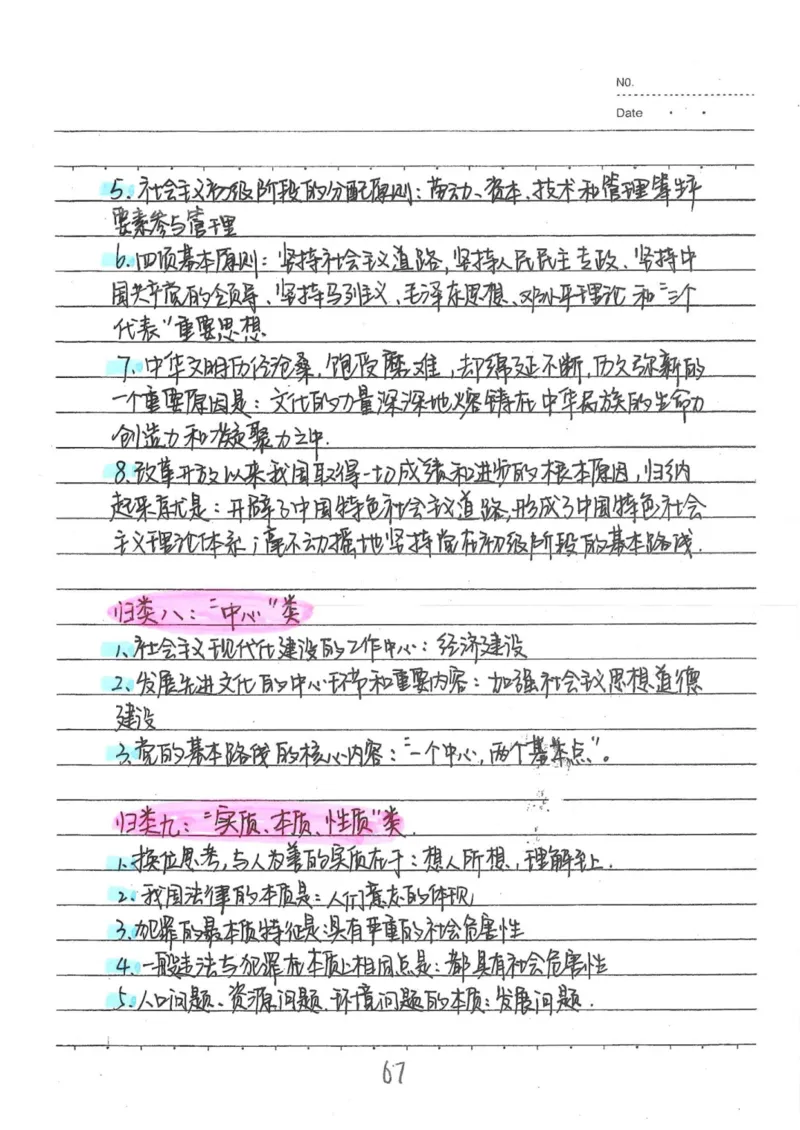 No.
Date
5、社会主义初级阶段的分配原则：劳动、资本、技术和管理等生产
要素参与管理
6、四项基本原则：坚持社会主义道路，坚持人民民主专政、坚持中
国共产党的领导、坚持马列主义、毛泽东思想、邓小平理论和“三个
代表”重要思想
7、中华文明历经沧桑，饱受磨难，却绵延不断，历久弥新的
一个重要原因是：文化的力量深深地熔铸在中华民族的生命力
创造力和凝聚力之中.
8、改革开放以来我国取得一切成绩和进步的根本原因，归纳
起来就是：开辟了中国特色社会主义道路，形成了中国特色社会
主义理论体系；毫不动摇地坚持党在初级阶段的基本路线.
归类八：“中心”类
1、社会主义现代化建设的工作中心：经济建设
2、发展先进文化的中心环节和重要内容：加强社会主义思想道德
建设
3、党的基本路线的核心内容：“一个中心，两个基本点”。
归类九：“实质、本质、性质”类.
1、换位思考，与人为善的实质在于：想人所想，理解至上.
2、我国法律的本质是：人们意志的体现
3、犯罪的最本质特征是：具有严重的社会危害性
4、一般违法与犯罪在本质上相同点是：都具有社会危害性
5、人口问题、资源问题、环境问题的本质：发展问题.
67